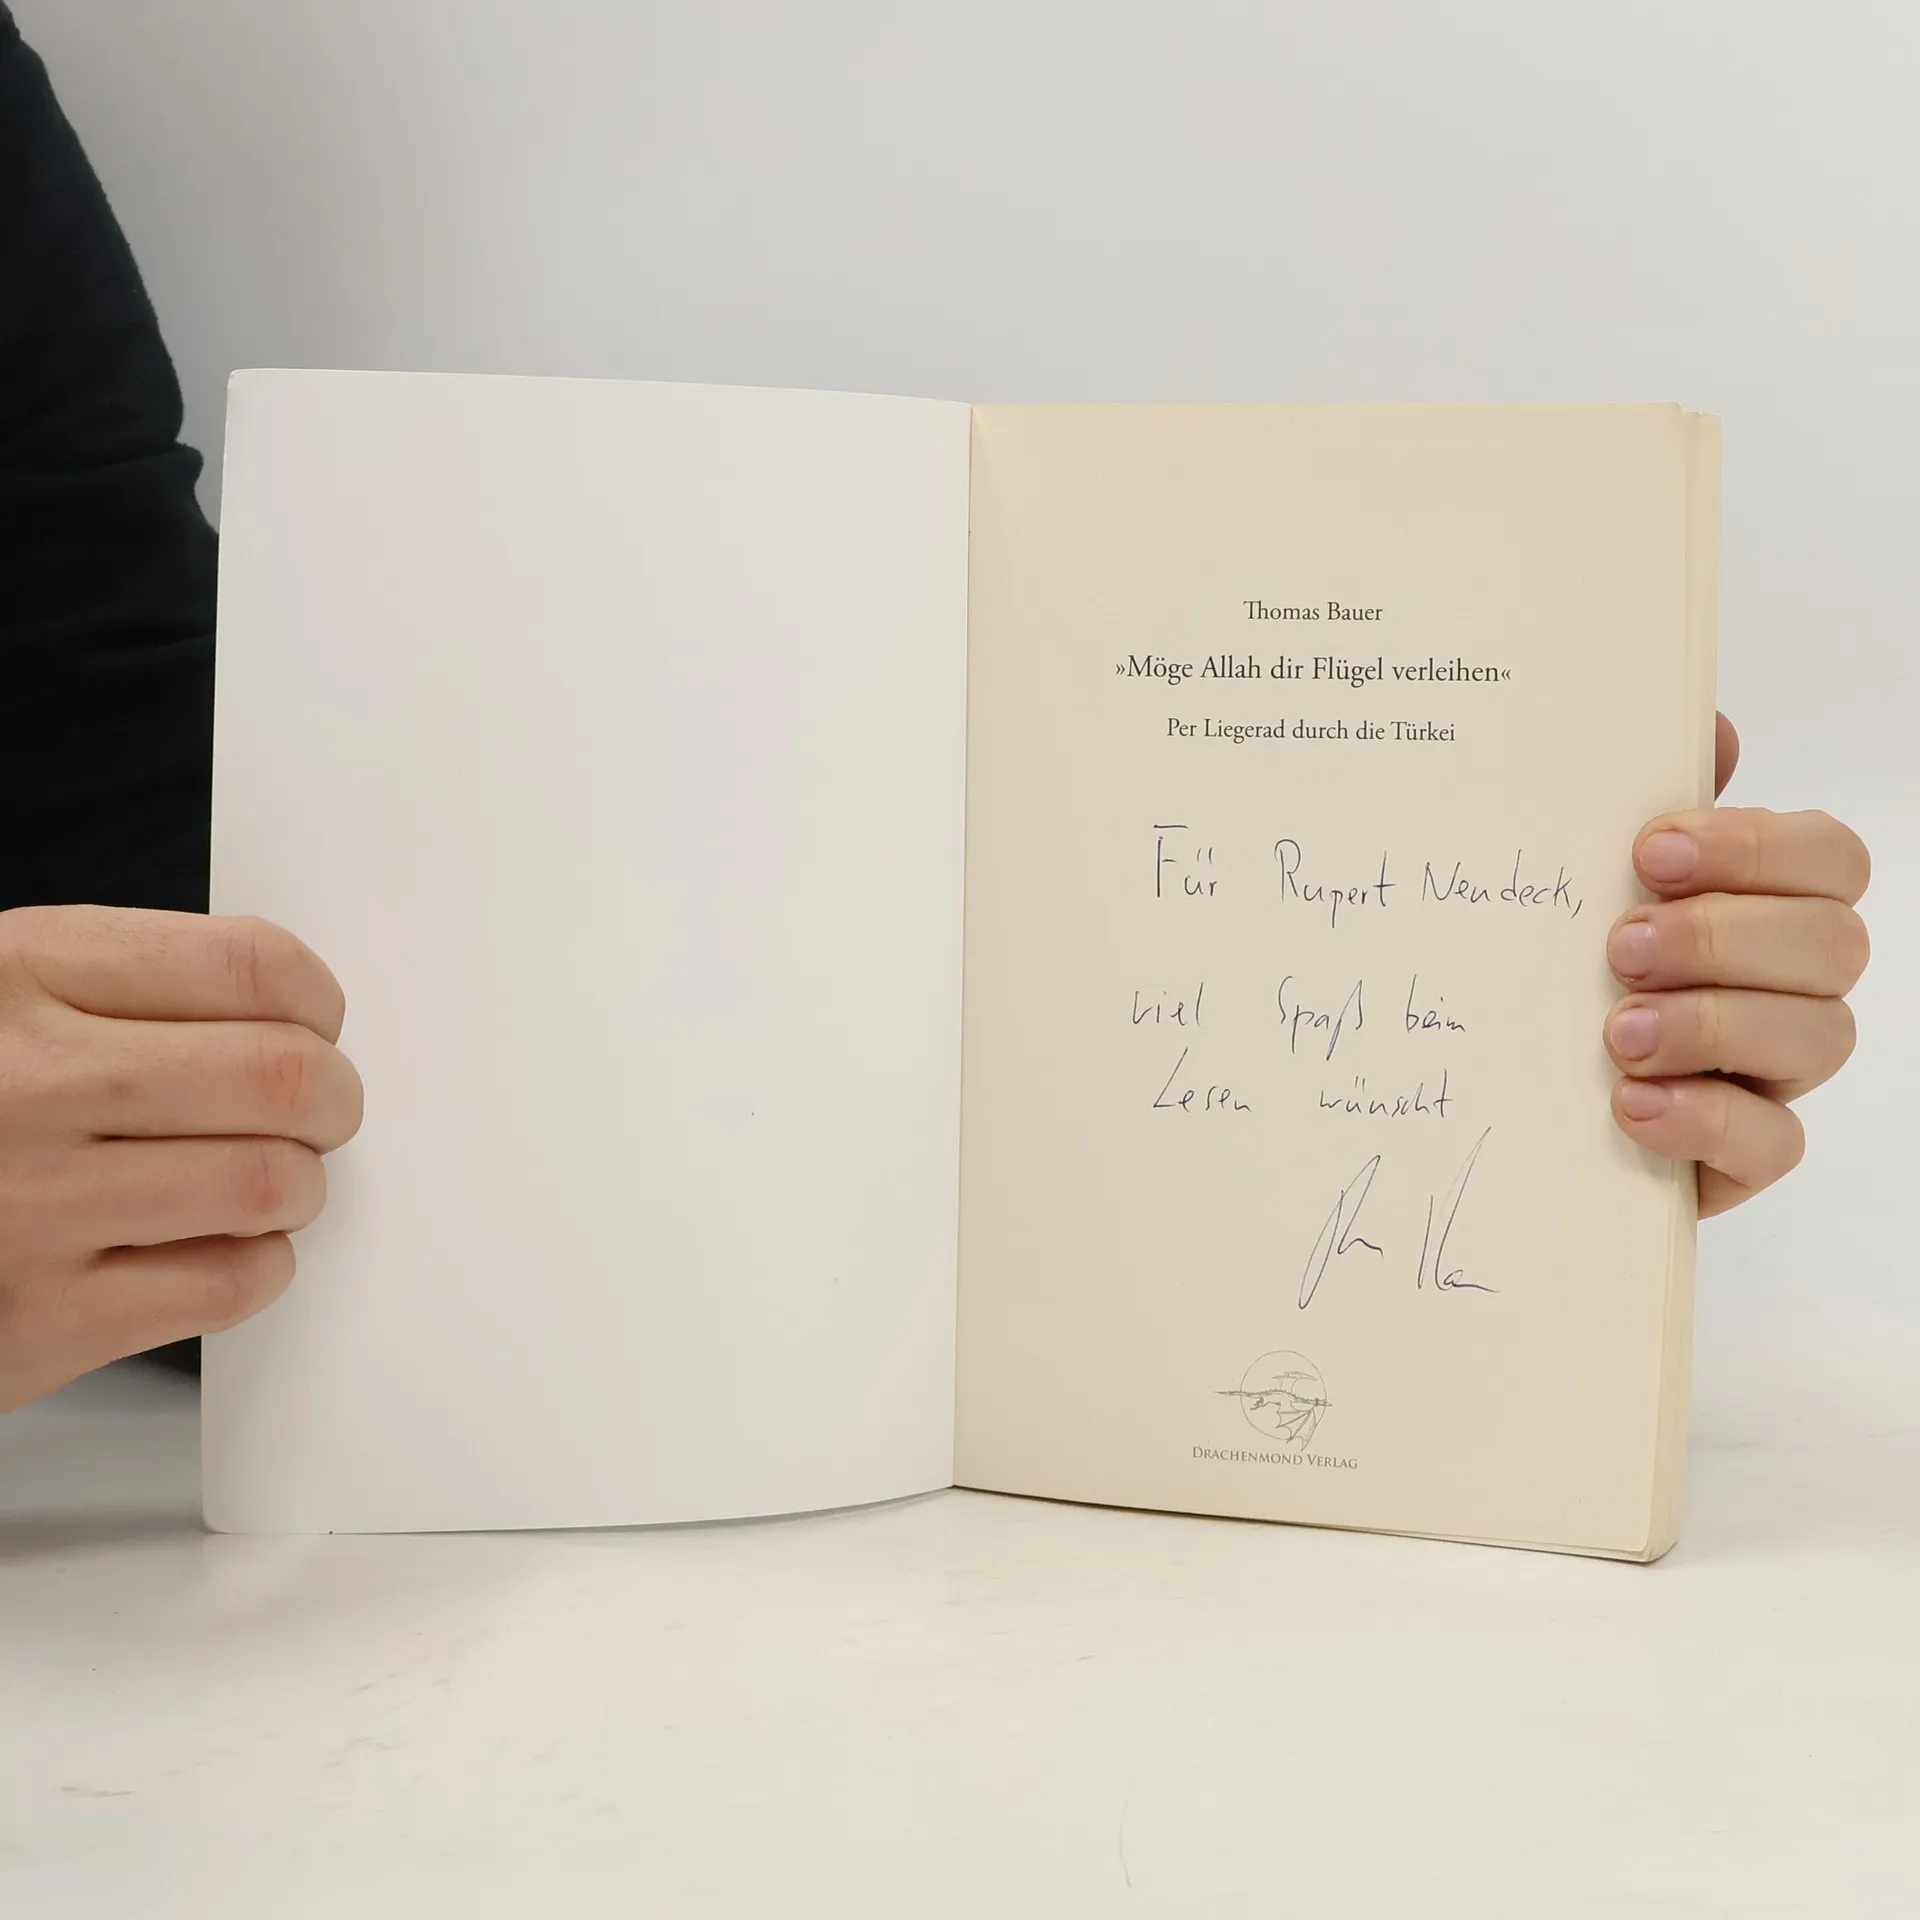 Thomas Bauer
»Möge Allah dir Flügel verleihen«
Per Liegerad durch die Türkei
Für Rupert Neudeck,
viel Spaß beim
Lesen wünscht
DRACHENMOND VERLAG